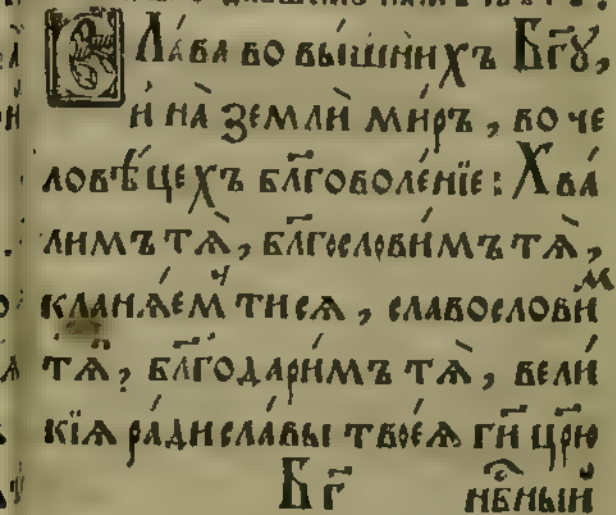 Сла́ва во вы́шнихъ Бг҃ꙋ,
и҆ на̀ землѝ ми́ръ, во че
ловѣ́цехъ бл҃говоле́нїе: Хва́
лимъ тѧ̀, бл҃гослови́мъ тѧ̀,
кланѧ́ем ти сѧ, славослови́м
тѧ̀, бл҃годари́мъ тѧ̀, вели́
кїѧ ра́ди сла́вы твоеѧ̀ гѝ҃ цр҃ю
нб҃ный
Бг҃